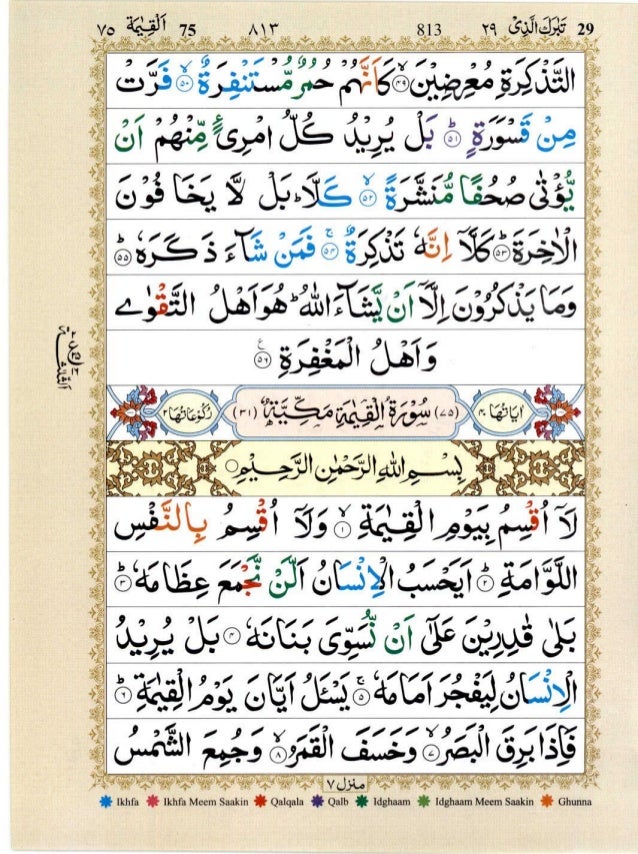 29 تَبٰرَكَ الَّذِیْ ٢٩ 813 ٨١٣ 75 اَلْقِیٰمَة ٧٥
التَّذْكِرَةِ مُعْرِضِیْنَ ۙ۝۴۹ كَاَنَّهُمْ حُمُرٌ مُّسْتَنْفِرَةٌ ۙ۝۵۰ فَرَّتْ
مِنْ قَسْوَرَةٍ ؕ۝۵۱ بَلْ یُرِیْدُ كُلُّ امْرِئٍ مِّنْهُمْ اَنْ
یُّؤْتٰی صُحُفًا مُّنَشَّرَةً ۙ۝۵۲ كَلَّا ؕ بَلْ لَّا یَخَافُوْنَ
الْاٰخِرَةَ ؕ۝۵۳ كَلَّاۤ اِنَّهٗ تَذْكِرَةٌ ۚ۝۵۴ فَمَنْ شَآءَ ذَكَرَهٗ ؕ۝۵۵
وَمَا یَذْكُرُوْنَ اِلَّاۤ اَنْ یَّشَآءَ اللّٰهُ ؕ هُوَ اَهْلُ التَّقْوٰی
وَاَهْلُ الْمَغْفِرَةِ ۝۵۶
اٰیَاتُهَا ۴۰ (٧٥) سُوْرَةُ الْقِیٰمَةِ مَكِّیَّةٌ (٣١) رُكُوْعَاتُهَا ٢
بِسْمِ اللّٰهِ الرَّحْمٰنِ الرَّحِیْمِ
لَاۤ اُقْسِمُ بِیَوْمِ الْقِیٰمَةِ ۙ۝۱ وَلَاۤ اُقْسِمُ بِالنَّفْسِ
اللَّوَّامَةِ ؕ۝۲ اَیَحْسَبُ الْاِنْسَانُ اَلَّنْ نَّجْمَعَ عِظَامَهٗ ؕ۝۳
بَلٰی قٰدِرِیْنَ عَلٰۤی اَنْ نُّسَوِّیَ بَنَانَهٗ ۝۴ بَلْ یُرِیْدُ
الْاِنْسَانُ لِیَفْجُرَ اَمَامَهٗ ۚ۝۵ یَسْـَٔلُ اَیَّانَ یَوْمُ الْقِیٰمَةِ ؕ۝۶
فَاِذَا بَرِقَ الْبَصَرُ ۙ۝۷ وَخَسَفَ الْقَمَرُ ۙ۝۸ وَجُمِعَ الشَّمْسُ
منزل ٧
Ikhfa Ikhfa Meem Saakin Qalqala Qalb Idghaam Idghaam Meem Saakin Ghunna